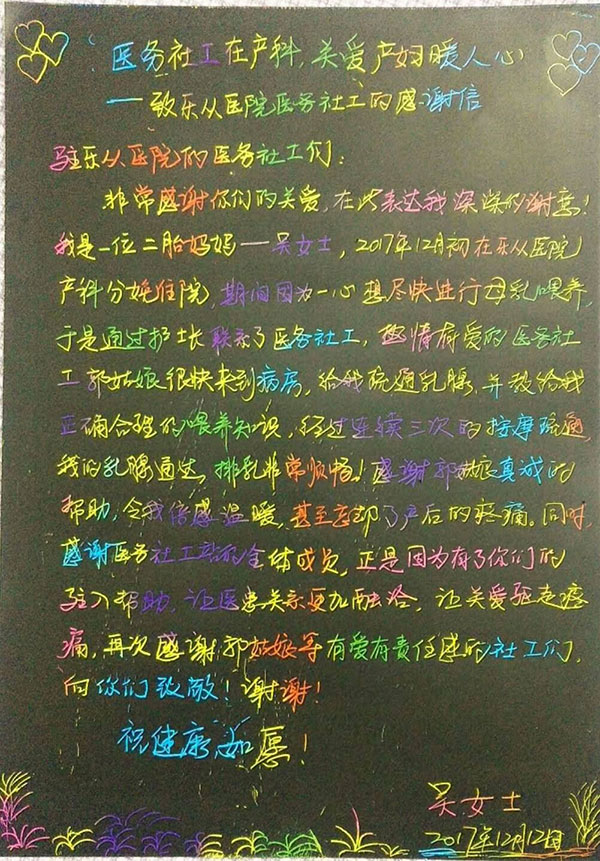 医务社工在产科,关爱产妇暖人心
——致乐从医院医务社工的感谢信
驻乐从医院的医务社工们:
非常感谢你们的关爱,在此表达我深深的谢意!
我是一位二胎妈妈——吴女士,2017年12月初在乐从医院
产科分娩住院,期间因为一心想尽快进行母乳喂养,
于是通过护士长联系了医务社工,热情有爱的医务社
工郭姑娘很快来到病房,给我疏通乳腺,并教给我
正确合理的喂养知识,经过连续三次的按摩疏通,
我的乳腺通达,排乳非常顺畅!感谢郭姑娘真诚的
帮助,令我倍感温暖,甚至忘却了产后的疼痛。同时,
感谢医务社工站的全体成员,正是因为有了你们的
驻入帮助,让医患关系更加融洽,让关爱驱走疼
痛,再次感谢郭姑娘等有爱有责任感的社工们,
向你们致敬!谢谢!
祝健康,如愿!
吴女士
2017年12月12日